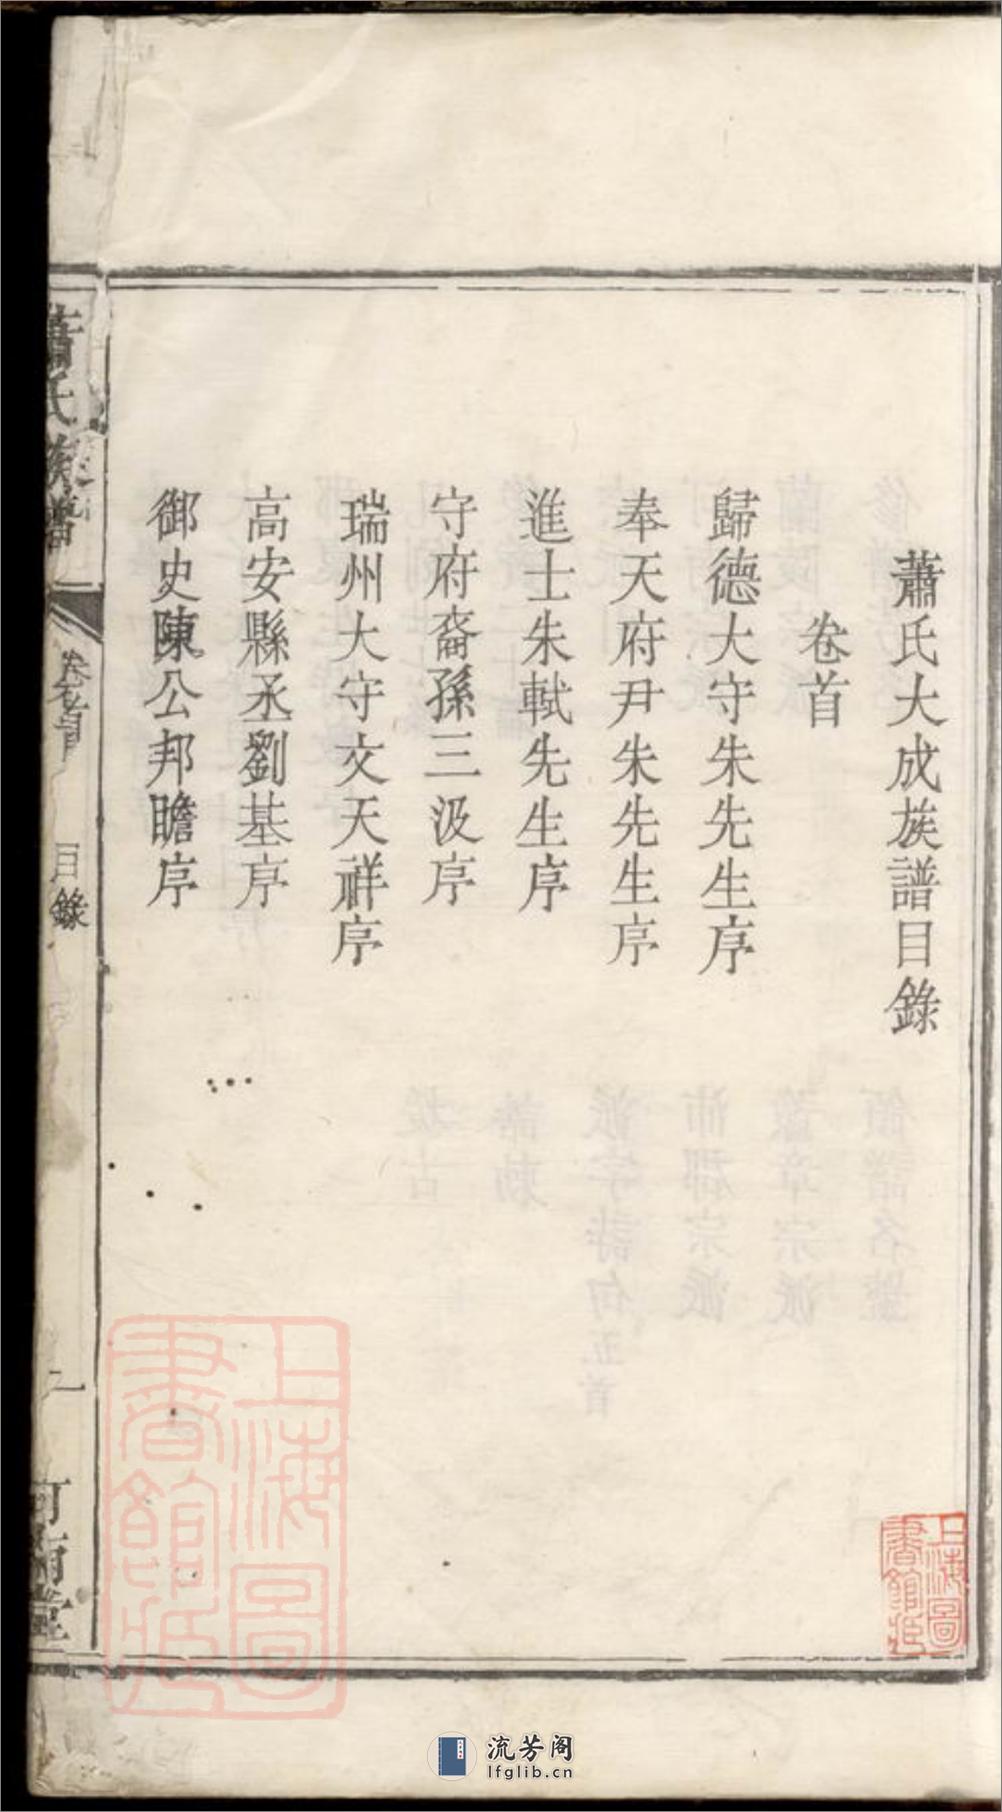 蕭氏大成族譜目錄
卷首
歸德大守朱先生序
奉天府尹朱先生序
進士朱軾先生序
守府裔孫三汲序
瑞州大守文天祥序
高安縣丞劉基序
御史陳公邦瞻序
蕭氏族譜
卷首
目錄
一
河南堂
上海圖書館藏
上海圖書館藏
流芳阁
lfglib.cn